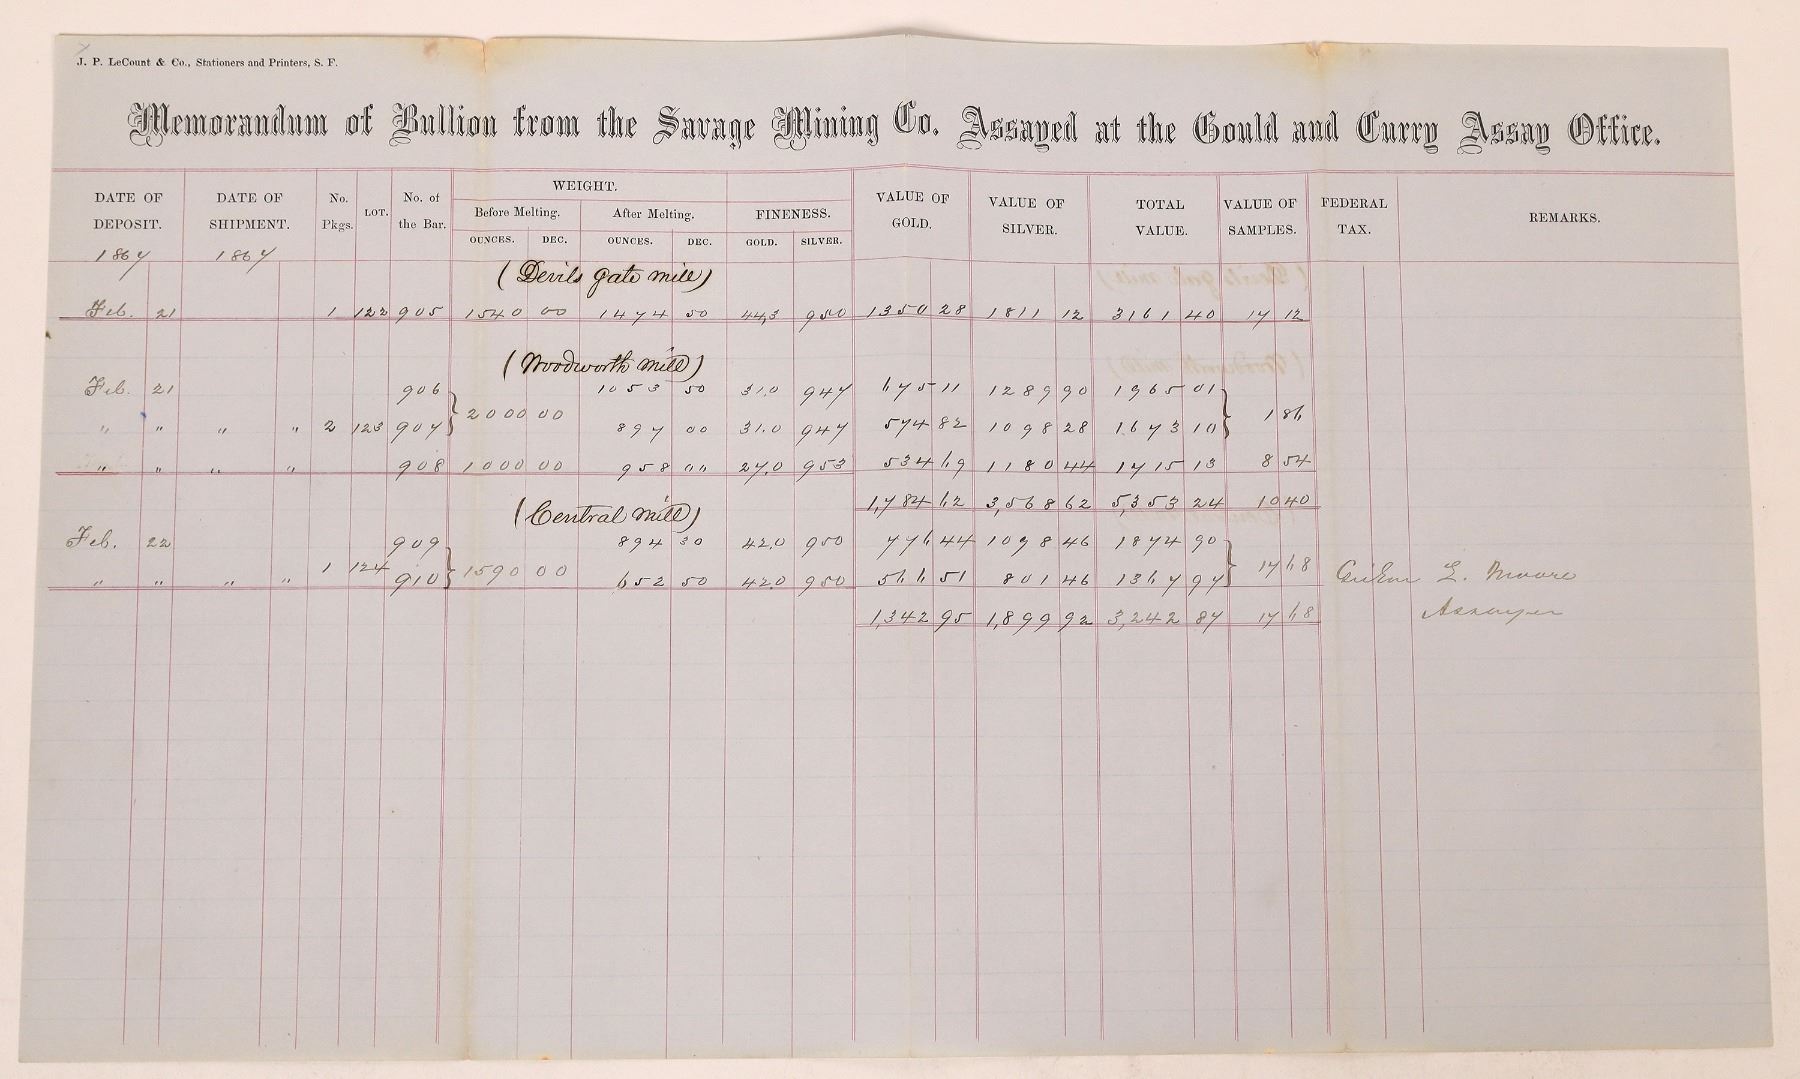 J. P. LeCount & Co., Stationers and Printers, S. F.
Memorandum of Bullion from the Savage Mining Co. Assayed at the Gould and Curry Assay Office.
DATE OF DEPOSIT. DATE OF SHIPMENT. No. Pkgs. LOT. No. of the Bar. WEIGHT. FINENESS. VALUE OF GOLD. VALUE OF SILVER. TOTAL VALUE. VALUE OF SAMPLES. FEDERAL TAX. REMARKS.
Before Melting. After Melting.
OUNCES. DEC. OUNCES. DEC. GOLD. SILVER.
1867 1867
(Devils gate mill)
Feb. 21 1 122 905 1540 00 1474 50 44,3 950 1350 28 1811 12 3161 40 17 12
(Woodworth mill)
Feb. 21 906 1053 50 31,0 947 675 11 1289 90 1965 01
2000 00 1 86
" " " " 2 123 907 897 00 31,0 947 574 82 1098 28 1673 10
" " " " 908 1000 00 958 00 27,0 953 534 69 1180 44 1715 13 8 54
1,784 62 3,568 62 5,353 24 10 40
(Central mill)
Feb. 22 909 894 30 42,0 950 776 44 1098 46 1874 90
1 124 1590 00 17 68
" " " " 910 652 50 42,0 950 566 51 801 46 1367 97 Moore
1,342 95 1,899 92 3,242 87 17 68 Assayer